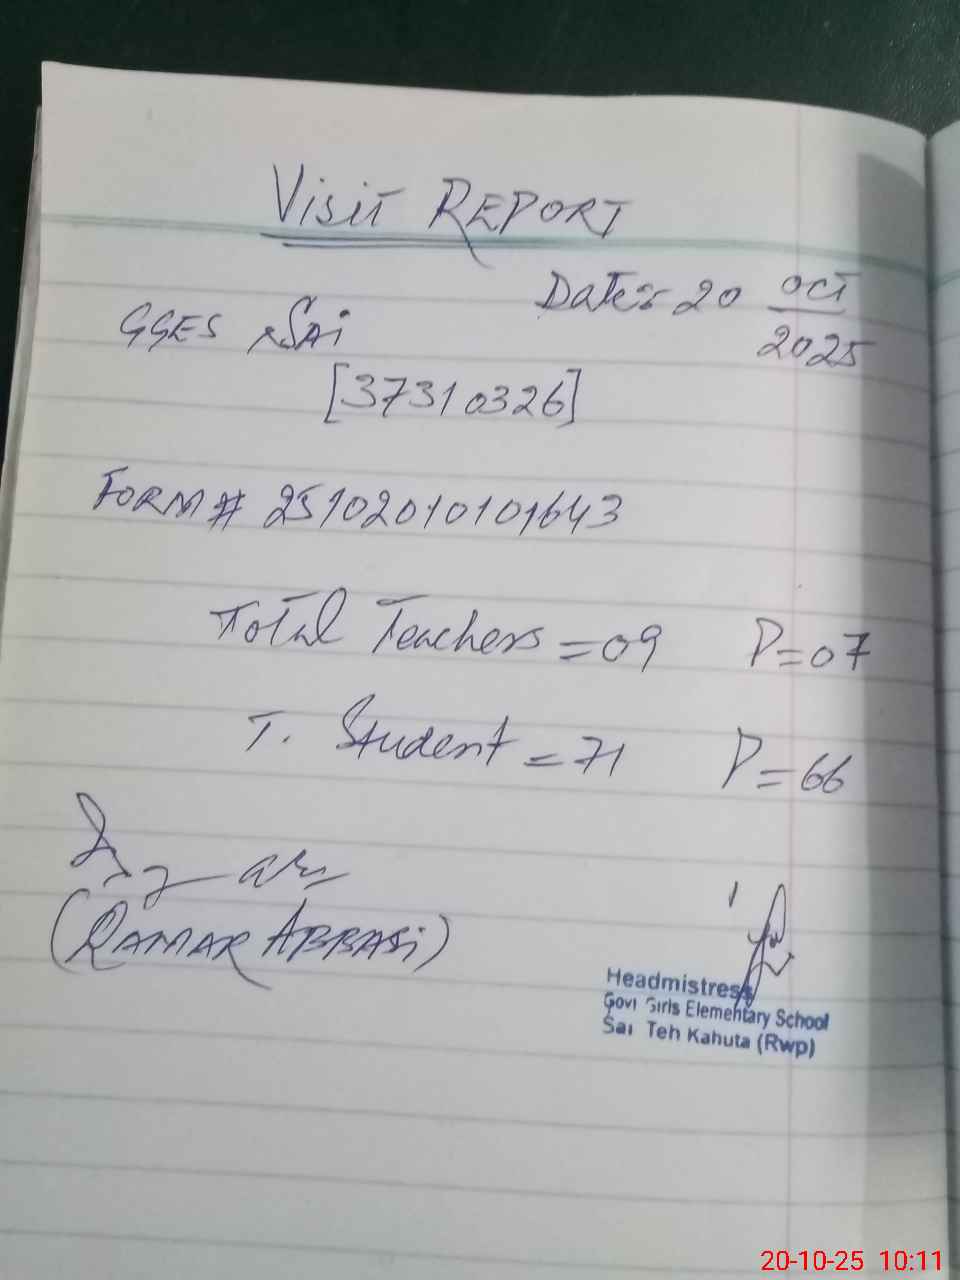 Visit REPORT
Date:- 20 Oct
2025
GGES Sai
[37310326]
FORM# 25102010101643
Total Teachers = 09 P=07
T. Student = 71 P=66
(QAMAR ABBASi)
Headmistress
Govt Girls Elementary School
Sai Teh Kahuta (Rwp)
20-10-25 10:11